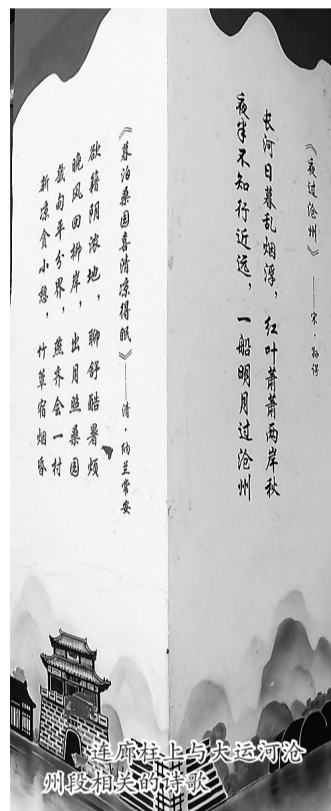 《夜过沧州》——宋·孙谔
长河日暮乱烟浮，红叶萧萧两岸秋
夜半不知行近远，一船明月过沧州
《暮泊桑园喜清凉得眠》——清·纳兰常安
欲籍阴浓地，聊舒酷暑烦
晚风回柳岸，出月照桑园
甸平分界，燕齐会一村
新凉贪小憩，竹宿烟昏
连廊柱上与大运河沧
州段相关的诗歌